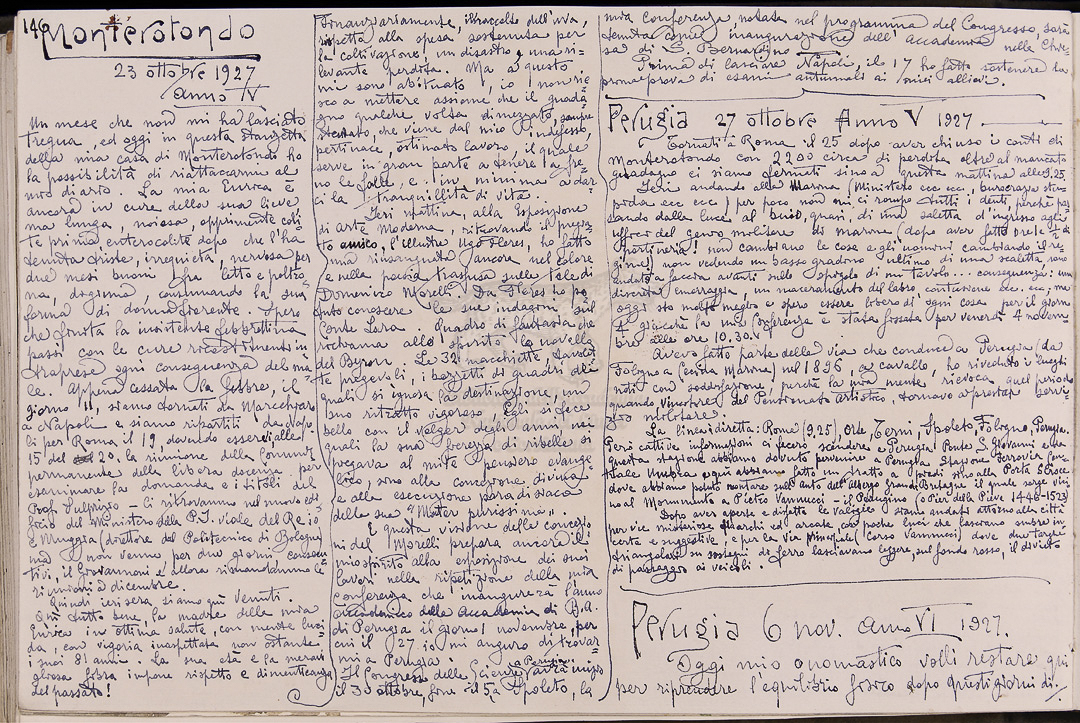 146
Monterotondo
23 ottobre 1927
anno V
Un mese che non mi ha lasciato
tregua, ed oggi in questa stanzetta
della mia casa di Monterotondo ho
la possibilità di riattaccarmi al
mio diario. La mia Enrica è
ancora in cura della sua lieve
ma lunga, noiosa, opprimente coli-
te prima, enterocolite dopo che l'ha
tenuta triste, irrequieta, nervosa per
due mesi buoni fra letto e poltro-
na, digiuna, consumando la sua
forma di donna fiorente. Spero
che finita la insistente febbrittina
passi con le cure ricostituenti in-
traprese ogni conseguenza del ma-
le. Appena cessata la febbre, il
giorno 11, siamo tornati da Marechiaro
a Napoli e siamo ripartiti da Napo-
li per Roma il 19, dovendo essere alle
15 del 20, la riunione della Comm.
permanente della libera docenza per
esaminare la domanda e i titoli del
Prof. Ci ritrovammo nel nuovo edi-
ficio del Ministero della P.I. viale del Re io
e Muggia (direttore del Politecnico di Bologna)
ma non venne per due giorni consecu-
tivi, il Giovannoni e allora rimandammo le
riunioni a dicembre.
Quindi ieri sera siamo qui venuti.
Qui tutto bene, la madre della mia
Enrica in ottima salute, con mente luci-
da, con vigoria inaspettata non ostante
i suoi 81 anni. La sua età e la meravi-
gliosa fibra impone rispetto e dimenticanza
del passato!
Finanziariamente, il raccolto dell'uva,
rispetto alla spesa sostenuta per
la coltivazione, un disastro, una ri-
levante perdita. Ma a questo
mi sono abituato, io non rie-
sco a mettere assieme che il guada-
gno qualche volta dimezzato, sempre
stentato, che viene dal mio indefesso,
pertinace, ostinato lavoro, il quale
serve in gran parte a tenere la fre-
no le folle, e in minima a dar-
ci la tranquillità di vita.
Ieri mattina, alla esposizione
di arte Moderna, ritrovando il vec-
chio amico, l'illustre Ugo Fleres, ho fatto
ma rinsanguato ancora nel colore
e nella poesia trasfusa sulle tele di
Domenico Morelli. Da Fleres ho po-
tuto conoscere le sue indagini sul
Conte Lara. Quadro di fantasia che
richiama allo spirito la novella
del Byron. Le 32 macchiette, tavolet-
te pregevoli, i bozzetti di quadri dei
quali si ignora la destinazione, un
suo ritratto vigoroso. Egli si fece
bello con il volger degli anni, nei
quali la sua fierezza di ribelle si
piegava al mite pensiero evange-
lico, sino alla concezione divina
e alla esecuzione paradisiaca
della sua "Mater purissima".
E questa visione delle concezio-
ni del Morelli prepara ancora il
mio spirito alla esposizione dei suoi
lavori nella ripetizione della mia
conferenza che inaugurerà l'anno
accademico della Accademia di B.A.
di Perugia il giorno 1 novembre, per
cui il 27 io mi auguro di trovar-
mi a Perugia.
Il Congresso delle Scienze a Perugia avrà inizio
il 30 ottobre, fine il 5 a Spoleto, la
mia conferenza, notata nel programma del Congresso, sarà
tenuta come inaugurazione dell'Accademia nella Chie-
sa di S. Bernardino.
Prima di lasciare Napoli, il 17 ho fatto sostenere la
prima prova di esami autunnali ai miei allievi.
Perugia 27 ottobre Anno V 1927.
Tornati a Roma il 25 dopo aver chiuso i conti di
Monterotondo con 2200 circa di perdita oltre al mancato
guadagno ci siamo fermati sino a questa mattina alle 9,25
Ieri andando alla Marina (Ministero ecc ecc, burocrazia stu-
pida ecc ecc) per poco non mi ci rompo tutti i denti, perché pas-
sando dalla luce al buio, quasi, di una saletta d'ingresso agli
uffici del genio militare di marina (dopo aver fatto ore 1 e ½ di
portineria! non cambiano le cose e gli uomini cambiando il re-
gime) non vedendo un basso gradino ultimo di una scaletta sono
andato a faccia avanti sullo spigolo di un tavolo... conseguenza: una
discreta emorragia, un maceramento del labbro contusione ecc. ecc, ma
oggi sto molto meglio e spero essere libero d'ogni cosa per il giorno
4 giacché la mia Conferenza è stata fissata per venerdì 4 novem-
bre alle ore 10,30.
Avevo fatto parte della via che conduce a Perugia (da
Foligno a (civita Marina) nel 1896, a cavallo, ho riveduto i luoghi
noti con soddisfazione, perché la mia mente rievoca quel periodo
quando vincitore del Pensionato Artistico, tornavo a prestar servi-
zio militare.
La linea diretta: Roma (9,25) Orte, Terni, Spoleto, Foligno, Perugia.
Però cattive informazioni ci fecero scendere a Perugia Ponte S. Giovanni e da
questa stazione abbiamo dovuto pervenire a Perugia Stazione Ferrovia Cen-
trale Umbra e qui abbiamo fatto un tratto a piedi sino alla Porta S. Croce
dove abbiamo potuto montare sull'Auto dell'Albergo Grande Bretagne il quale sorge vici-
no al Monumento a Pietro Vannucci - il Perugino (o Pier della Pieve 1446-1523)
Dopo aver aperte e disfatte le valigie siamo andati attorno alla città
per vie misteriose ad archi ed arcate con poche luci che lasciano ombre in-
certe e suggestive, e per la via principale (Corso Vannucci) dove due targhe
triangolari su sostegni di ferro lasciavano leggere, sul fondo rosso, il divieto
di passaggio ai veicoli.
Perugia 6 nov. anno VI 1927.
Oggi mio onomastico volli restare qui
per riprendere l'equilibrio fisico dopo questi giorni di